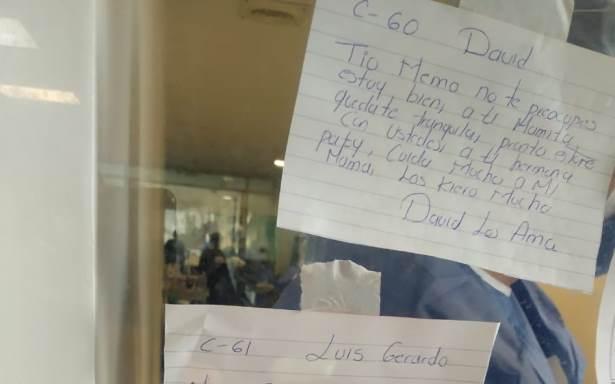 C-60 David
Tio Memo no te preocupes
estoy bien, a ti Mamita,
quedate tranquila, pronto estare
con ustedes, a ti hermana
paty, Cuida Mucho a Mi
Mama, Los Kiero Mucho
David Los Ama
C-61 Luis Gerardo